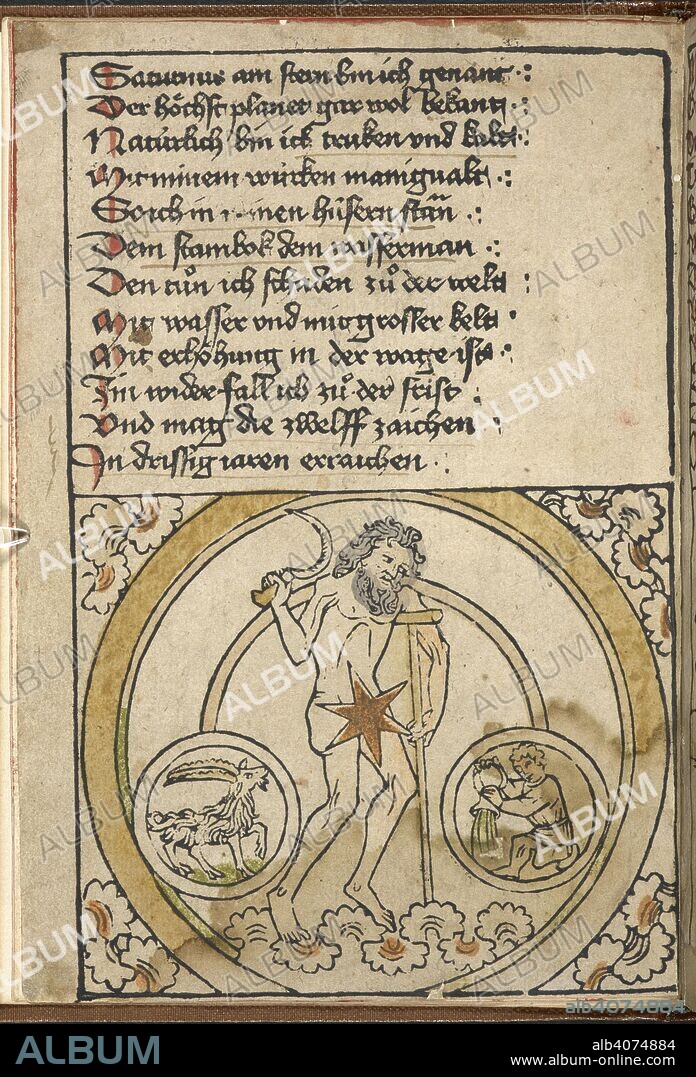 Saturnus am stern bin ich genant
Der höchst planet gar wol bekant
Natürlich bin ich truken vnd kalt
Mit minem würken manigualt
So ich in minen hüsern stan
Dem stainbok dem wasserman
Den tuͦn ich schaden zuͦ der welt
Mit wasser vnd mit grosser kelt
Mit erhöhung in der wage ist
Im wider fall ich zuͦ der frist
Vnd mag die zwelff zaichen
In drissig iaren erraichen
ALBUM
alb4074884
ALBUM
alb4074884
www.album-online.com